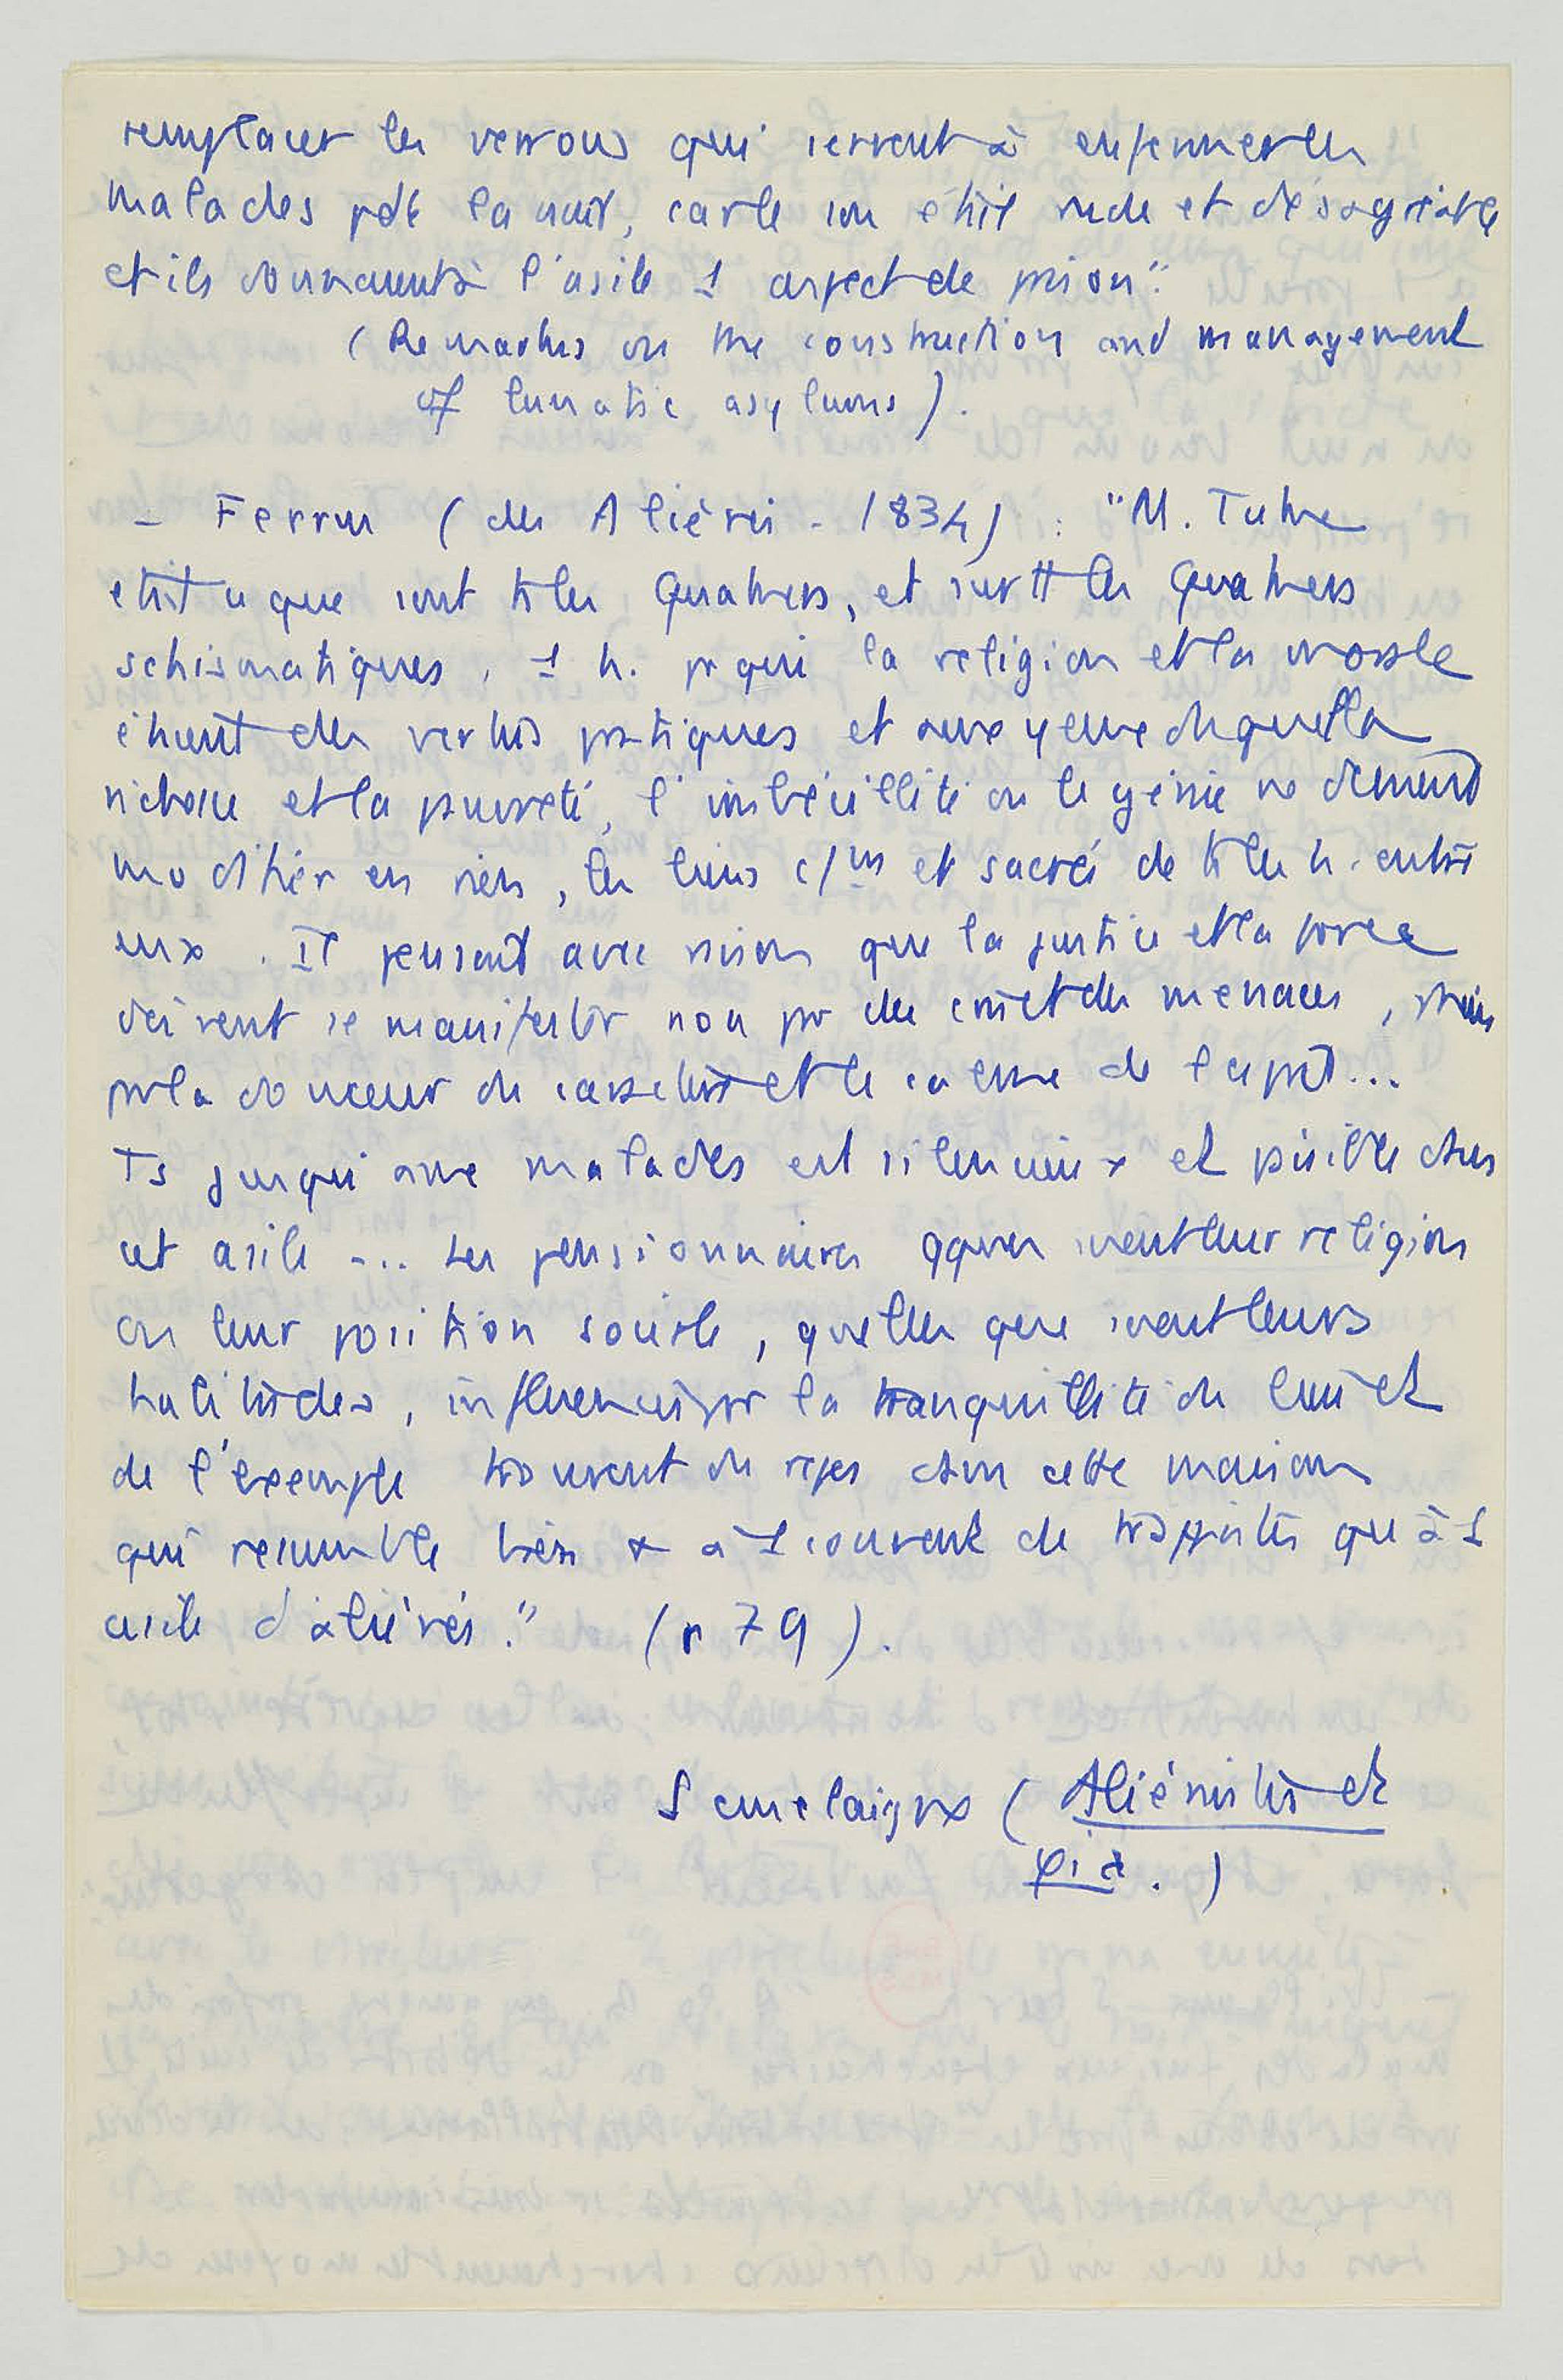 remplacer les verrous qui servent à enfermer les
malades pdt la nuit, car le son était rude et désagréable
et ils donnaient à l'asile 1 aspect de prison".
(Remarks on the construction and management
of lunatic asylums).
- Ferrus (des Aliénés - 1834) : "M. Tuke
était ce que sont ts les Quakers, et surtt les Quakers
schismatiques, 1 h. pr qui la religion et la morale
étaient des vertus pratiques et aux yeux duquel la
richesse et la pauvreté, l'imbécillité ou le génie ne devaient
modifier en rien, les liens c/uns et sacrés de ts les h. entre
eux. Il pensait avec raison que la justice et la force
doivent se manifester non pr des cris et des menaces, mais
pr la douceur du caractère et le calme de l'esprit...
Ts jusqu'aux malades est silencieux et paisible dans
cet asile ... Les pensionnaires qque soient leur religion
ou leur position sociale, quelles que soient leurs
habitudes, influencés par la tranquillité du lieu et
de l'exemple trouvent du repos dans cette maison
qui ressemble bien + à 1 couvent de trappistes qu'à 1
asile d'aliénés." (p 79).
Semelaigne (Aliénistes et
φ i a.)